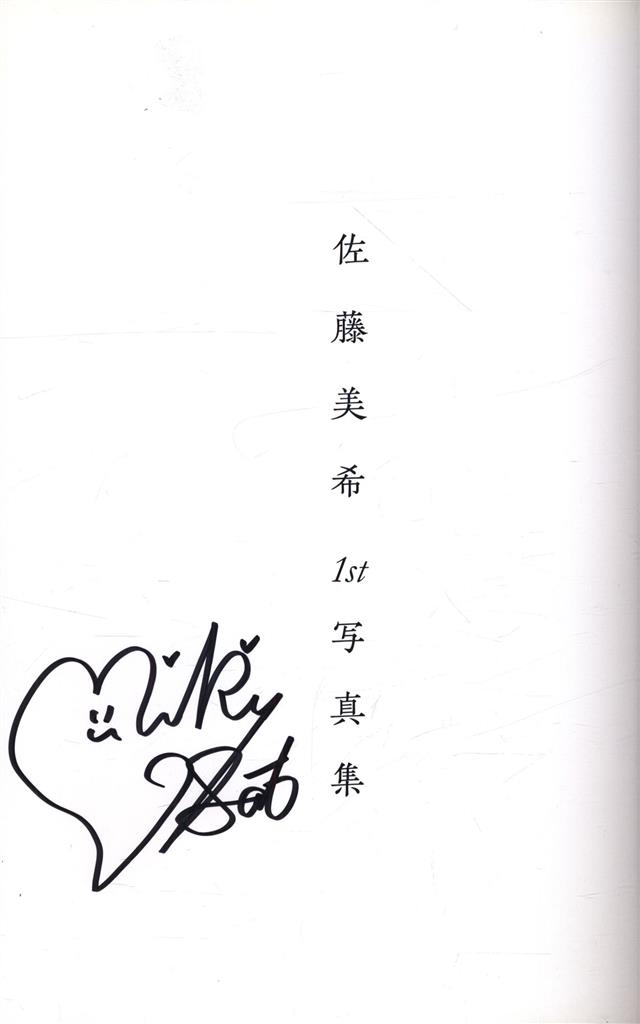 佐藤美希 1st写真集
Miki
Sato